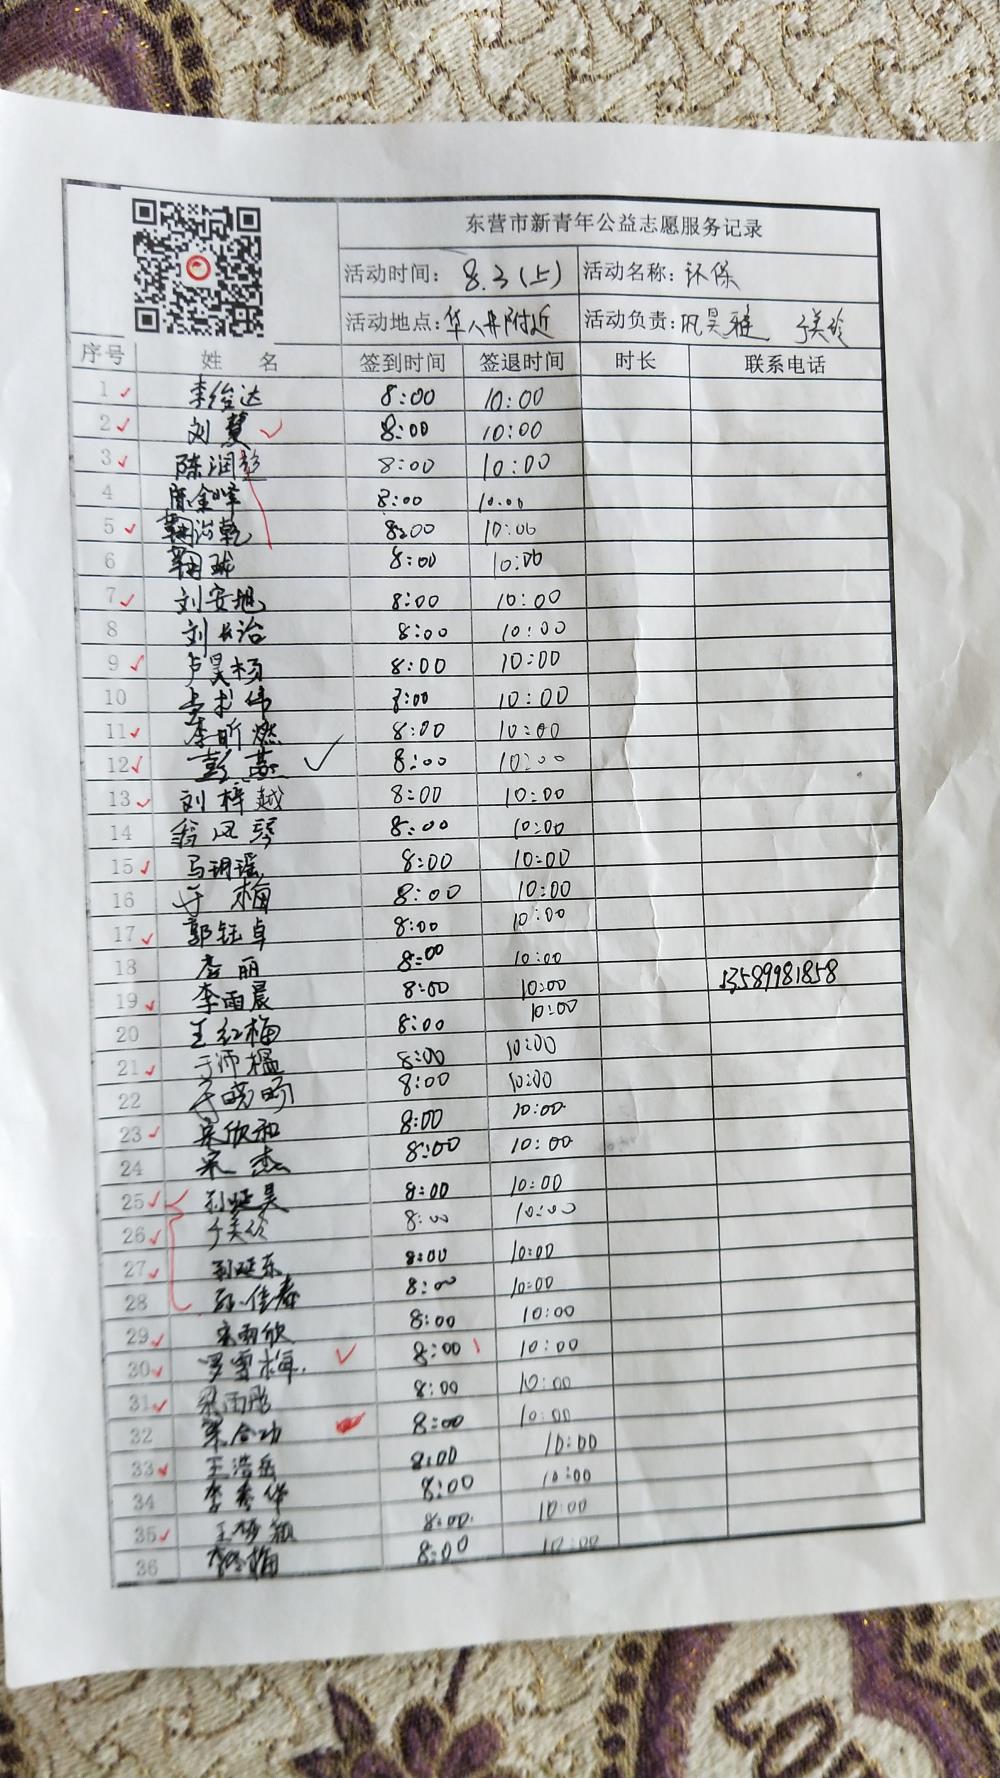 东营市新青年公益志愿服务记录
活动时间: 8.3(上) 活动名称: 环保
活动地点: 华八井附近 活动负责: 巩昊雅 于美玲
序号 姓 名 签到时间 签退时间 时长 联系电话
1 李俊达 8:00 10:00
2 刘慧 8:00 10:00
3 陈润超 8:00 10:00
4 陈金峰 8:00 10:00
5 鞠沿乾 8:00 10:00
6 鞠斌 8:00 10:00
7 刘安旭 8:00 10:00
8 刘长治 8:00 10:00
9 卢昊杨 8:00 10:00
10 8:00 10:00
11 李昕燃 8:00 10:00
12 彭燕 8:00 10:00
13 刘梓越 8:00 10:00
14 翁凤琴 8:00 10:00
15 马玥瑶 8:00 10:00
16 于梅 8:00 10:00
17 郭钰卓 8:00 10:00
18 李丽 8:00 10:00 13589981858
19 李雨晨 8:00 10:00
20 王红梅 8:00 10:00
21 于沛榅 8:00 10:00
22 于晓旸 8:00 10:00
23 宋欣和 8:00 10:00
24 宋杰 8:00 10:00
25 刘延昊 8:00 10:00
26 于美玲 8:00 10:00
27 刘延东 8:00 10:00
28 8:00 10:00
29 宋雨欣 8:00 10:00
30 罗雪梅 8:00 10:00
31 梁雨彤 8:00 10:00
32 梁合功 8:00 10:00
33 王浩岳 8:00 10:00
34 李秀华 8:00 10:00
35 王梦颖 8:00 10:00
36 8:00 10:00
LO